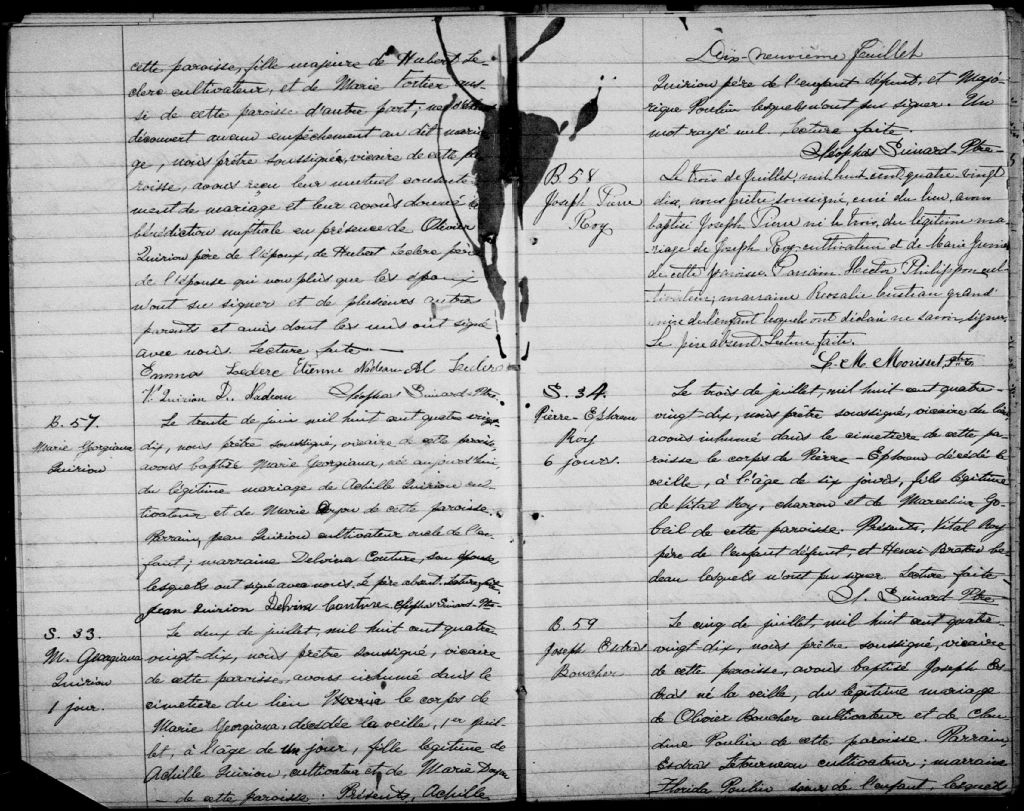 cette paroisse, fille majeure de Hubert Le-
clerc cultivateur, et de Marie Fortier aus-
si de cette paroisse d'autre part;
découvert aucun empêchement au dit maria-
ge, nous prêtre soussigné, vicaire de cette pa-
roisse, avons reçu leur mutuel consente-
ment de mariage et leur avons donné la
bénédiction nuptiale en présence de Olivier
Quirion père de l'époux, de Hubert Leclerc père
de l'épouse qui non plus que les époux
n'ont su signer et de plusieurs autres
parents et amis dont les uns ont signé
avec nous. Lecture faite —
Emma Leclerc Etienne Nadeau Al Leclerc
V. Quirion D. Nadeau Cléophas Simard Ptre
B. 57.
Marie Georgiana
Quirion
Le trente de juin mil huit cent quatre vingt
dix, nous prêtre soussigné, vicaire de cette paroisse
avons baptisé Marie Georgiana, née aujourd'hui,
du légitime mariage de Achille Quirion cul-
tivateur et de Marie Doyon de cette paroisse.
Parrain, Jean Quirion cultivateur oncle de l'en-
fant; marraine Delvina Couture, son épouse
lesquels ont signé avec nous. Le père absent. Lecture faite,
Jean Quirion Delvina Couture Cléophas Simard Ptre
S. 33.
M. Georgiana
Quirion
1 jour.
Le deux de juillet, mil huit cent quatre-
vingt-dix, nous prêtre soussigné, vicaire
de cette paroisse, avons inhumé dans le
cimetière du lieu le corps de
Marie Georgiana, décédée la veille, 1er juil-
let, à l'âge de un jour, fille légitime de
Achille Quirion, cultivateur et de Marie Doyon
— de cette paroisse. Présents, Achille
Dix-neuvième feuillet
Quirion père de l'enfant défunt, et Majo-
rique Poulin lesquels n'ont pu signer. Un
mot rayé nul. Lecture faite.
Cléophas Simard Ptre
B. 58
Joseph Pierre
Roy
Le trois de Juillet, mil huit cent quatre vingt
dix, nous prêtre soussigné, curé du lieu, avons
baptisé Joseph Pierre né le trois, du légitime ma-
riage de Joseph Roy cultivateur et de Marie
de cette paroisse. Parrain Hector Philippon cul-
tivateur; marraine Rosalie grand'
mère de l'enfant lesquels ont déclaré ne savoir signer.
Le père absent. Lecture faite.
L. M. Morisset, ptre
S. 34.
Pierre-Ephrem
Roy
6 jours.
Le trois de juillet, mil huit cent quatre-
vingt-dix, nous prêtre soussigné, vicaire du lieu
avons inhumé dans le cimetière de cette pa-
roisse le corps de Pierre-Ephrem décédé la
veille, à l'âge de six jours, fils légitime
de Vital Roy, charron et de Marcelline Go-
beil de cette paroisse. Présents, Vital Roy
père de l'enfant défunt, et Henri be-
deau lesquels n'ont pu signer. Lecture faite
Cl. Simard Ptre
B. 59
Joseph Esdras
Boucher
Le cinq de juillet, mil huit cent quatre-
vingt-dix, nous prêtre soussigné, vicaire
de cette paroisse, avons baptisé Joseph Es-
dras né la veille, du légitime mariage
de Olivier Boucher cultivateur et de Clau-
dine Poulin de cette paroisse. Parrain,
Esdras Letourneau cultivateur; marraine
Florida Poulin soeur de l'enfant, lesquels